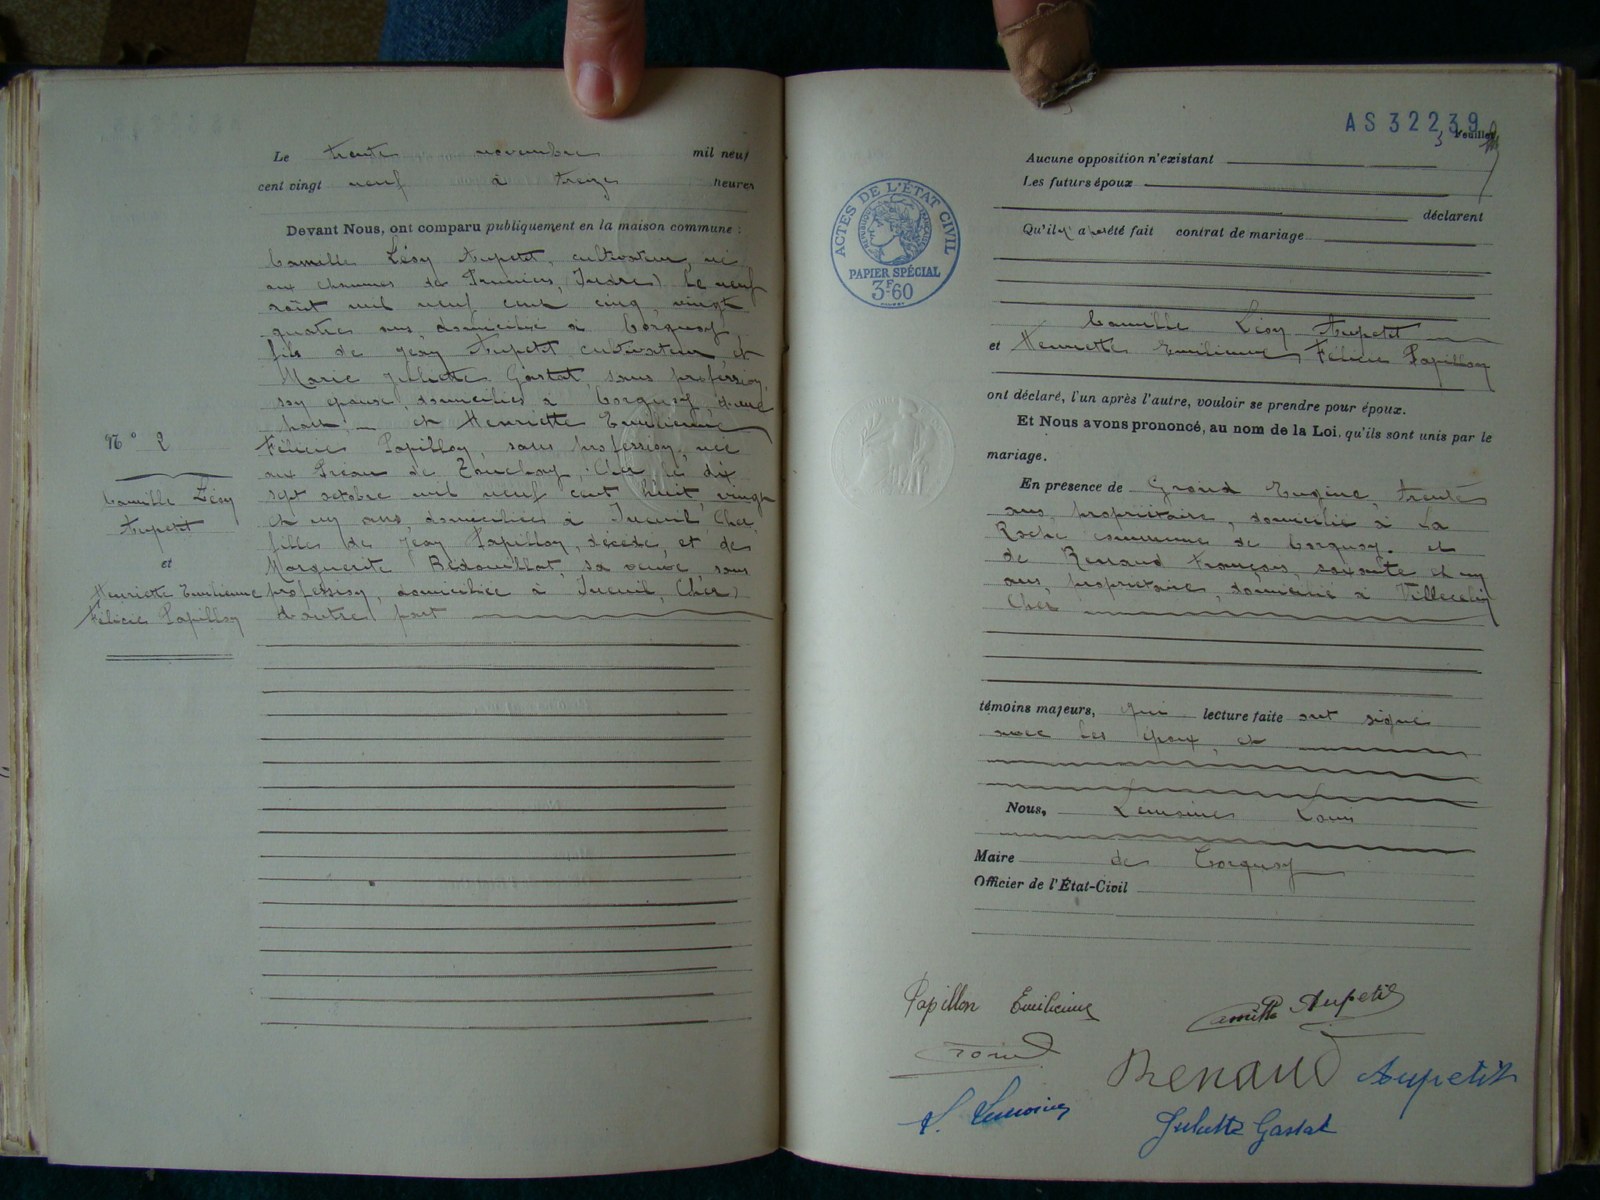 Le trente novembre mil neuf
cent vingt neuf à treize heures
Devant Nous, ont comparu publiquement en la maison commune :
Camille Lésy Aupetit, cultivateur, né
aux chaumes de Pruniers, Indre) le neuf
août mil neuf cent cinq, vingt
quatre ans, domicilié à Corquoy,
fils de Jean Aupetit cultivateur, et
Marie Juliette Gastat, sans profession,
son épouse, domiciliés à Corquoy, d'une
part, _ et Henriette Emilienne
Félicie Papillon, sans profession, née
aux Préau de Touchay, Cher le dix
sept octobre mil neuf cent huit, vingt
et un ans, domiciliée à Ineuil, Cher,
filles de Jean Papillon, décédé, et de
Marguerite Bedouillat, sa veuve, sans
profession, domiciliée à Ineuil, Cher)
d'autre part
N° 2
Camille Lésy
Aupetit
et
Henriette Emilienne
Félicie Papillon
AS 32239
3 Feuillet
Aucune opposition n'existant
Les futurs époux
déclarent
Qu'il a été fait contrat de mariage
ACTES DE L'ÉTAT CIVIL
RÉPUBLIQUE FRANÇAISE
PAPIER SPÉCIAL
3F60
Camille Lésy Aupetit
et Henriette Emilienne, Félicie Papillon
ont déclaré, l'un après l'autre, vouloir se prendre pour époux.
Et Nous avons prononcé, au nom de la Loi, qu'ils sont unis par le
mariage.
En présence de Grond Eugène, trente
ans, propriétaire, domicilié à La
Roche commune de Corquoy. et
de Renaud François, soixante et un
ans, propriétaire, domicilié à Villecelin
Cher
témoins majeurs, qui lecture faite ont signé
avec les époux, et
Nous, Lemoine Louis
Maire de Corquoy
Officier de l'État-Civil
Papillon Emilienne
Camille Aupetit
Renaud
Aupetit
L. Lemoine
Juliette Gastat